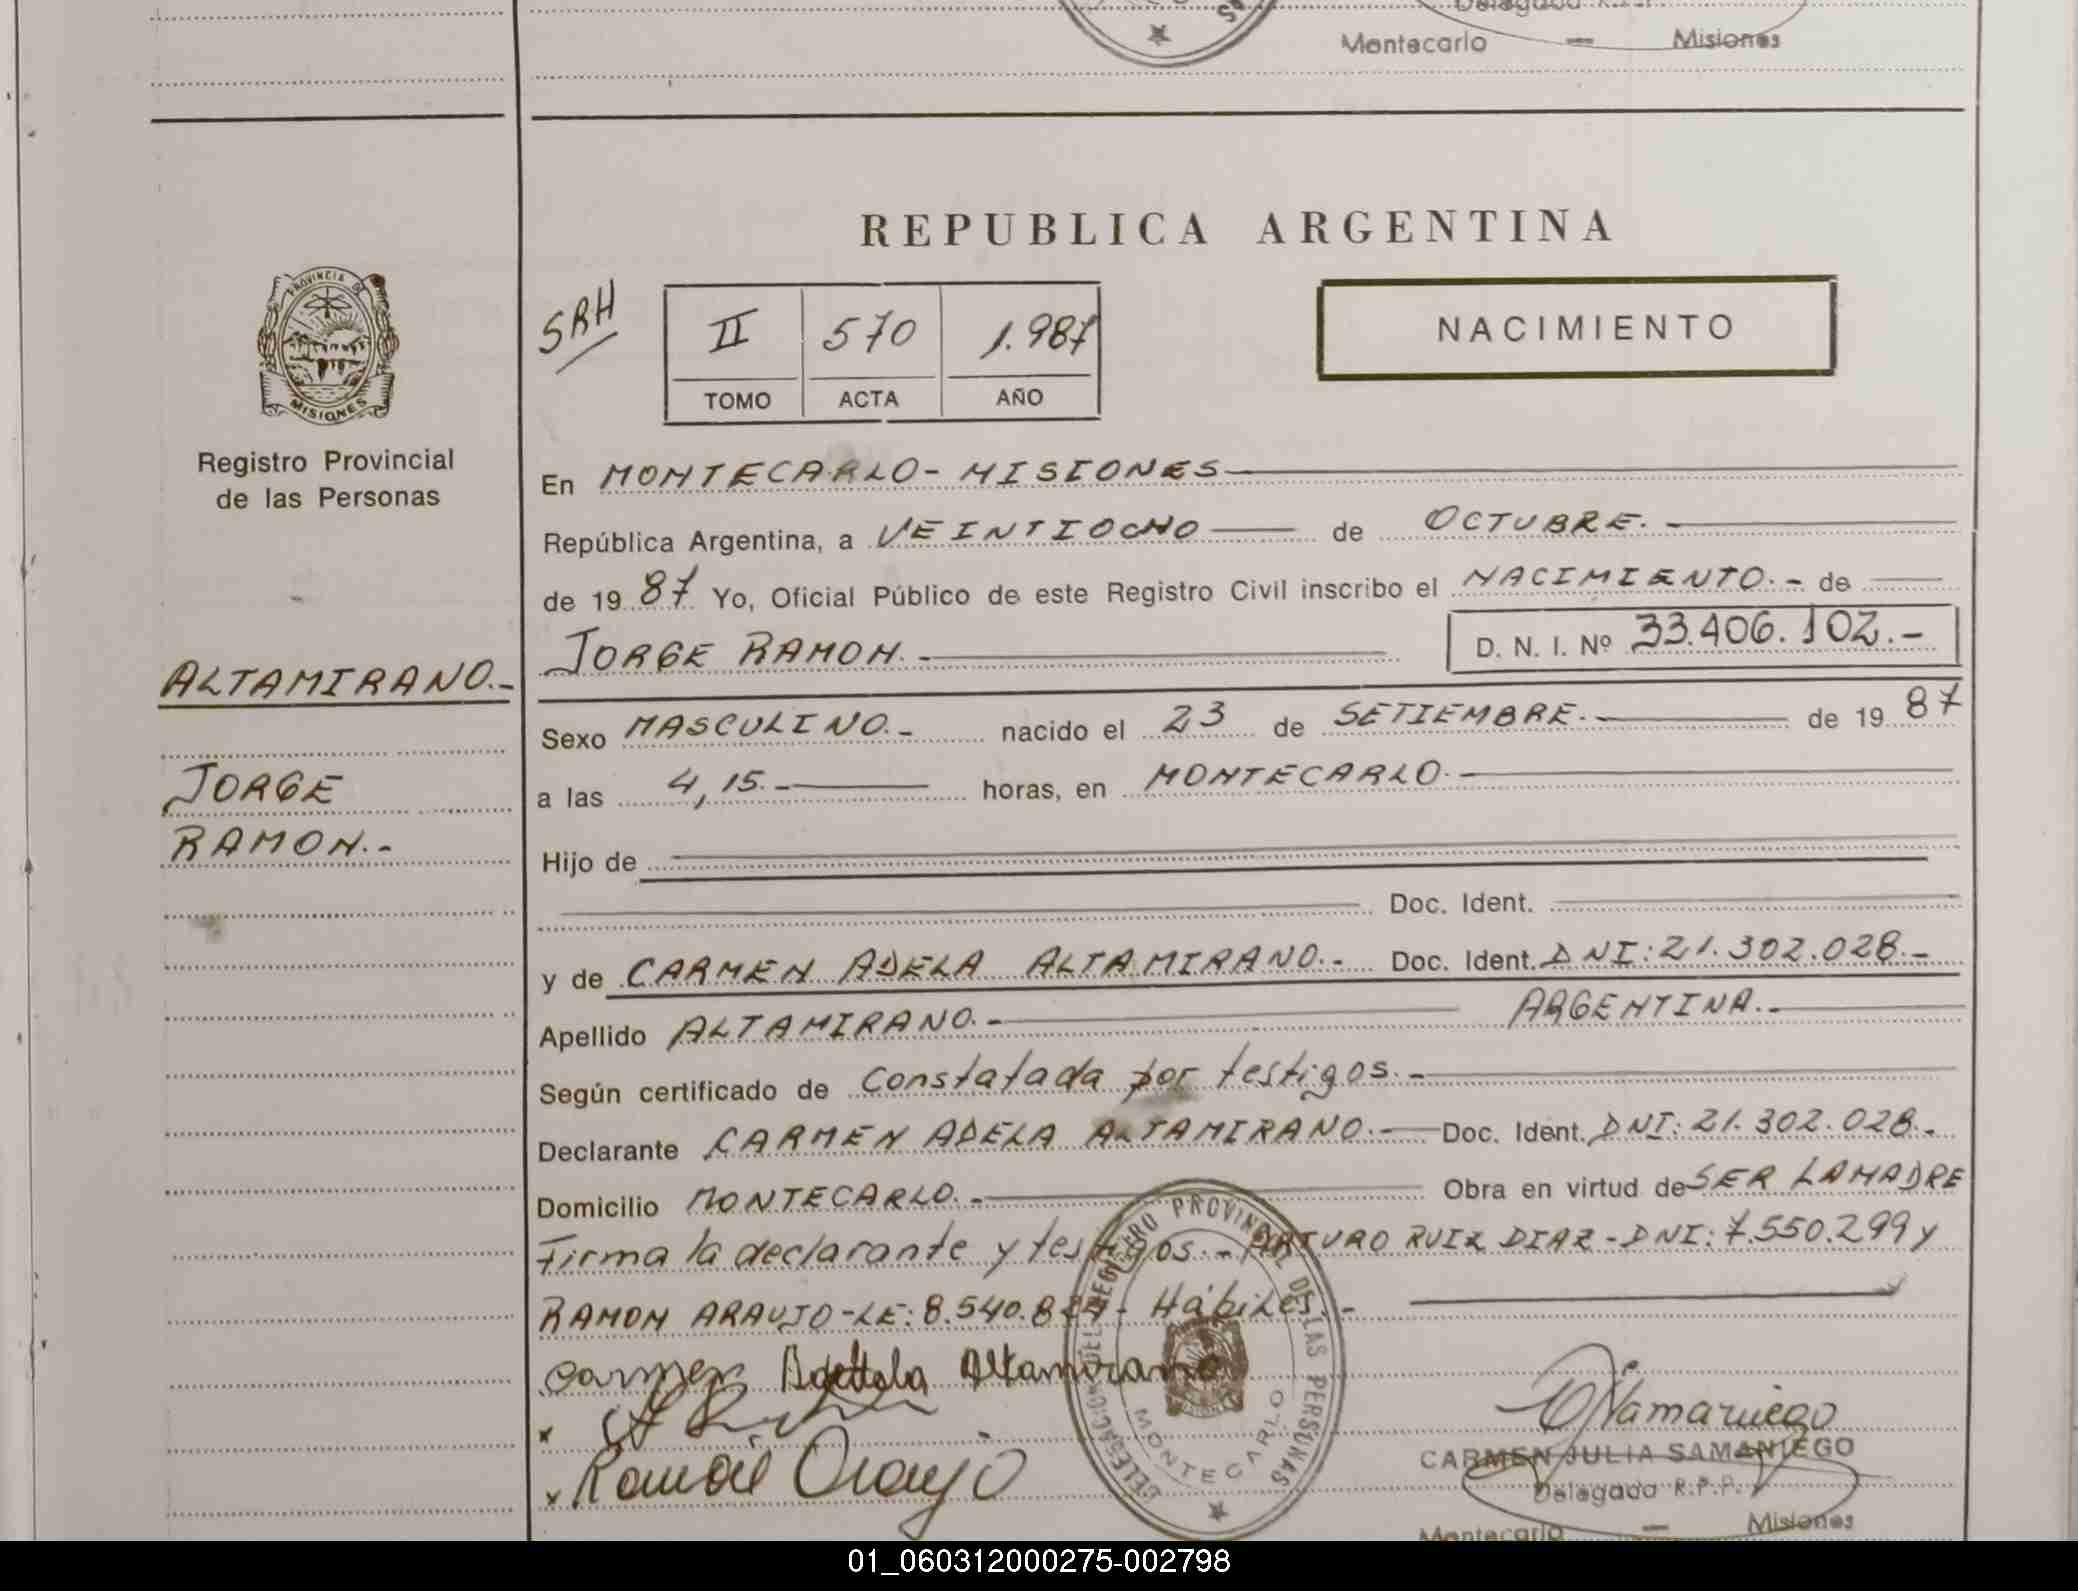 Montecarlo — Misiones
REPUBLICA ARGENTINA
PROVINCIA DE
MISIONES
Registro Provincial
de las Personas
SRH
II 570 1.987
TOMO ACTA AÑO
NACIMIENTO
En MONTECARLO - MISIONES
República Argentina, a VEINTIOCHO de OCTUBRE.-
de 1987 Yo, Oficial Público de este Registro Civil inscribo el NACIMIENTO.- de
JORGE RAMON.- D. N. I. Nº 33.406.102.-
ALTAMIRANO.-
JORGE
RAMON.-
Sexo MASCULINO.- nacido el 23 de SETIEMBRE.- de 1987
a las 4,15.- horas, en MONTECARLO.-
Hijo de
Doc. Ident.
y de CARMEN ADELA ALTAMIRANO.- Doc. Ident. DNI: 21.302.028.-
Apellido ALTAMIRANO.- ARGENTINA.-
Según certificado de Constatada por testigos.-
Declarante CARMEN ADELA ALTAMIRANO.- Doc. Ident. DNI: 21.302.028.-
Domicilio MONTECARLO.- Obra en virtud de SER LA MADRE
Firma la declarante y testigos.- ARTURO RUIZ DIAZ - DNI: 7.550.299 y
RAMON ARAUJO - LE: 8.540. - Hábiles.-
Carmen Altamirano
Ramon Araujo
DELEGACION DEL REGISTRO PROVINCIAL DE LAS PERSONAS
MONTECARLO
Samaniego
CARMEN JULIA SAMANIEGO
Delegada R.P.P.
Montecarlo — Misiones
01_060312000275-002798